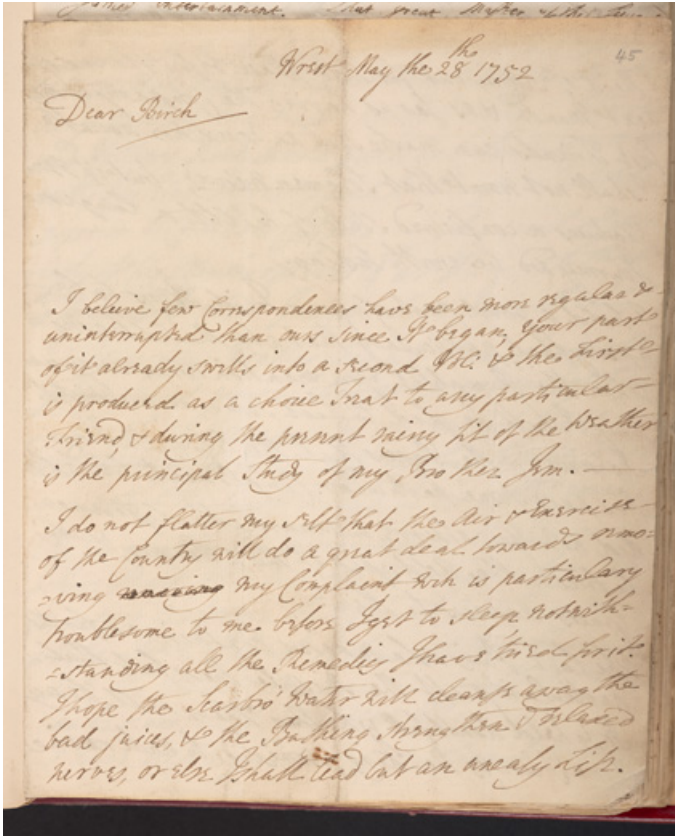 Entertainment. that great Master of the
45
Wrest May the 28th 1752
Dear Birch
I beleive few Correspondences have been more regular &
uninterrupted than ours since It began; Your part
of it already swells into a second Vol: & the First
is produced as a choice Treat to any particular
Friend, & during the present rainy fit of the Weather
is the principal Study of my Brother Jem. —
I do not flatter my self that the Air & Exercise
of the Country will do a great deal towards remo-
-ving my Complaint wch is particulary
troublesome to me before I get to sleep notwith-
-standing all the Remedies I have tried for it.
I hope the Scarbro' Water will cleanse away the
bad juices, & the Bathing strengthen relaxed
nerves, or else I shall lead but an uneasy Life.